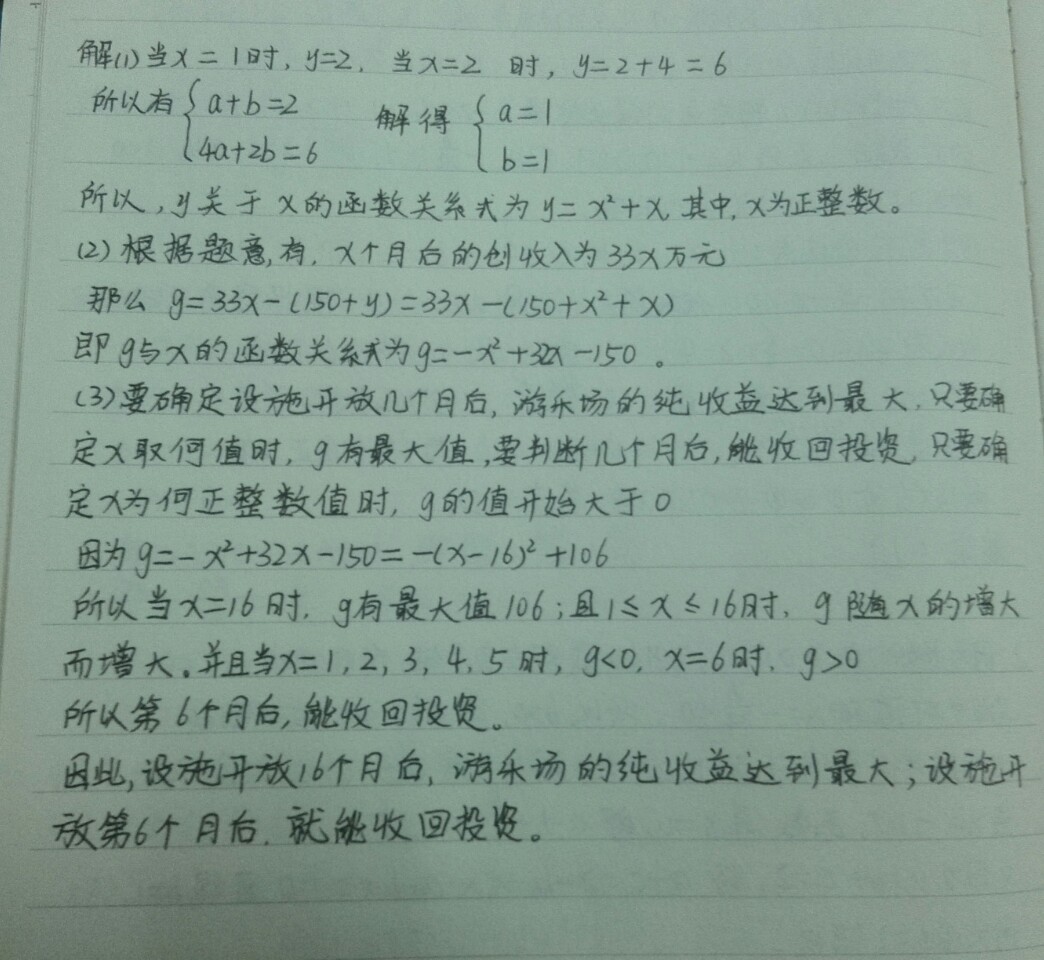 解(1)当x=1时,y=2,当x=2 时,y=2+4=6
所以有{a+b=2 解得{a=1
4a+2b=6 b=1
所以,y关于x的函数关系式为y=x²+x,其中,x为正整数。
(2)根据题意,有,x个月后的创收入为33x万元
那么 g=33x-(150+y)=33x-(150+x²+x)
即g与x的函数关系式为g=-x²+32x-150。
(3)要确定设施开放几个月后,游乐场的纯收益达到最大,只要确
定x取何值时,g有最大值,要判断几个月后,能收回投资,只要确
定x为何正整数值时,g的值开始大于0
因为g=-x²+32x-150=-(x-16)²+106
所以当x=16时,g有最大值106;且1≤x≤16时,g随x的增大
而增大。并且当x=1,2,3,4,5时,g<0,x=6时,g>0
所以第6个月后,能收回投资。
因此,设施开放16个月后,游乐场的纯收益达到最大;设施开
放第6个月后,就能收回投资。